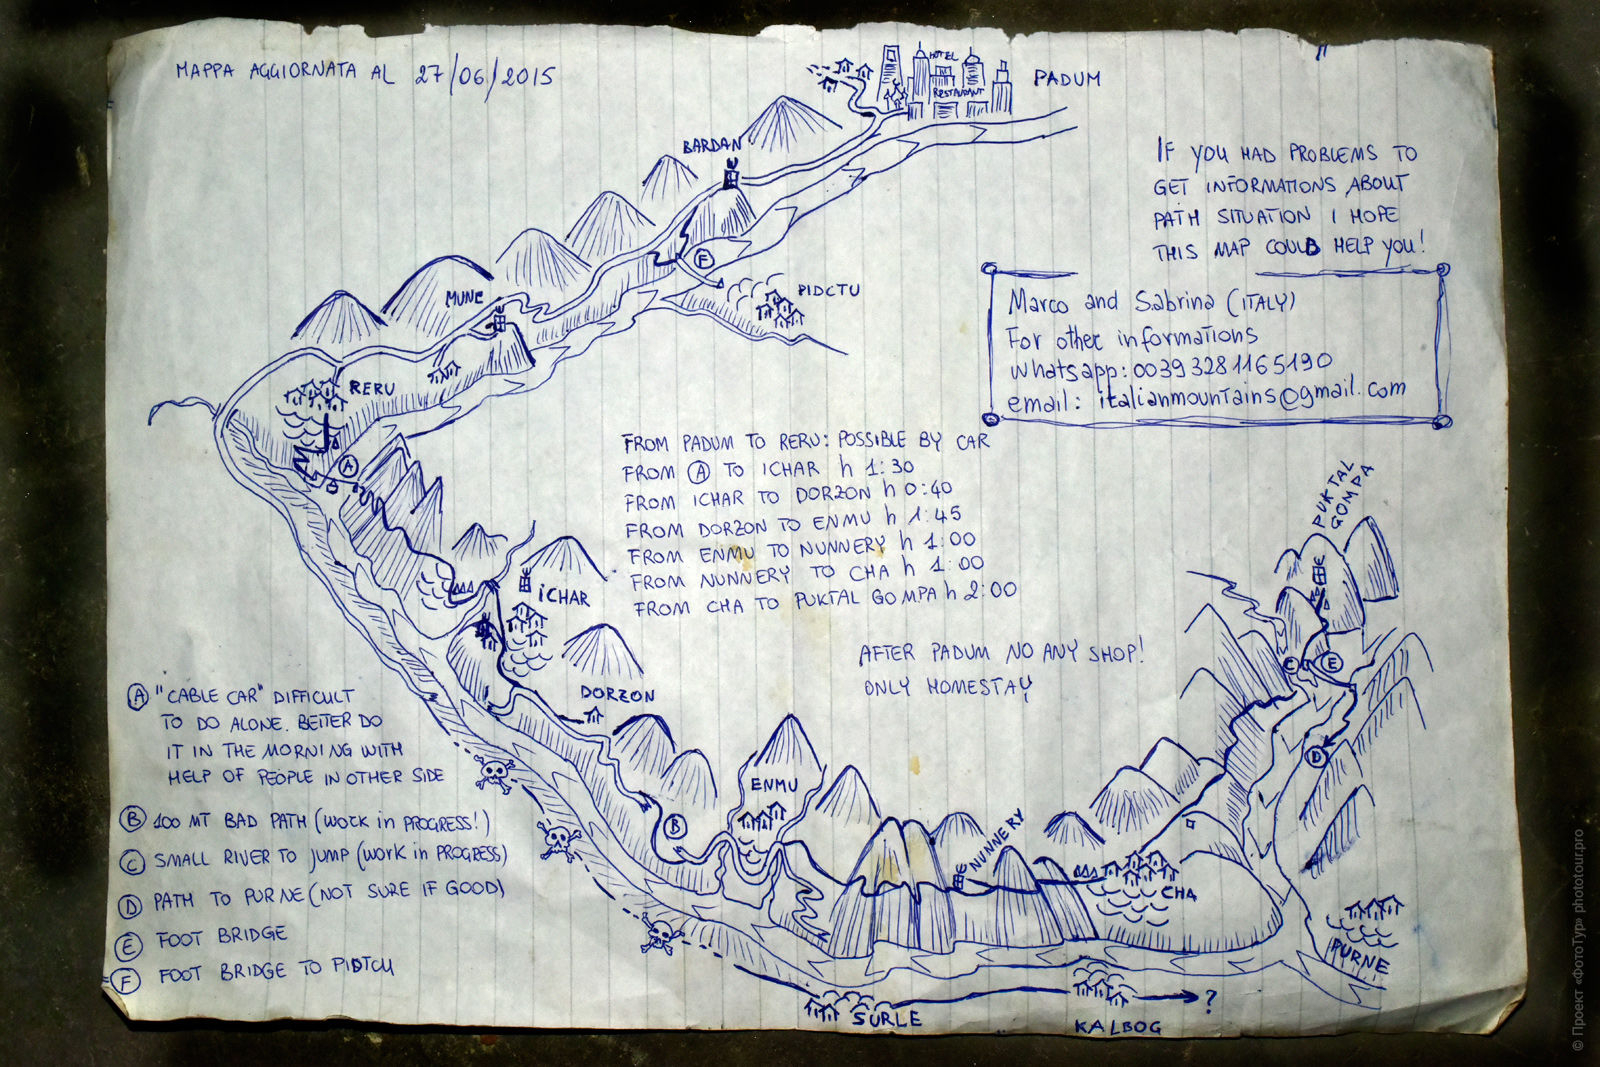 MAPPA AGGIORNATA AL 27/06/2015
HOTEL
RESTAURANT
PADUM
BARDAN
IF YOU HAD PROBLEMS TO
GET INFORMATIONS ABOUT
PATH SITUATION I HOPE
THIS MAP COULD HELP YOU!
F
PIDCTU
MUNE
Marco and Sabrina (ITALY)
For other informations
whatsapp: 0039 328 1165190
email: italianmountains@gmail.com
RERU
A
FROM PADUM TO RERU: POSSIBLE BY CAR
FROM A TO ICHAR h 1:30
FROM ICHAR TO DORZON h 0:40
FROM DORZON TO ENMU h 1:45
FROM ENMU TO NUNNERY h 1:00
FROM NUNNERY TO CHA h 1:00
FROM CHA TO PUKTAL GOMPA h 2:00
PUKTAL
GOMPA
ICHAR
AFTER PADUM NO ANY SHOP!
ONLY HOMESTAY
C
E
DORZON
D
ENMU
B
NUNNERY
CHA
PURNE
SURLE
KALBOG
?
A "CABLE CAR" DIFFICULT
TO DO ALONE. BETTER DO
IT IN THE MORNING WITH
HELP OF PEOPLE IN OTHER SIDE
B 100 MT BAD PATH (work in PROGRESS!)
C SMALL RIVER TO JUMP (work in PROGRESS)
D PATH TO PURNE (NOT SURE IF GOOD)
E FOOT BRIDGE
F FOOT BRIDGE TO PIDTCU
© Проект «ФотоТур» phototour.pro